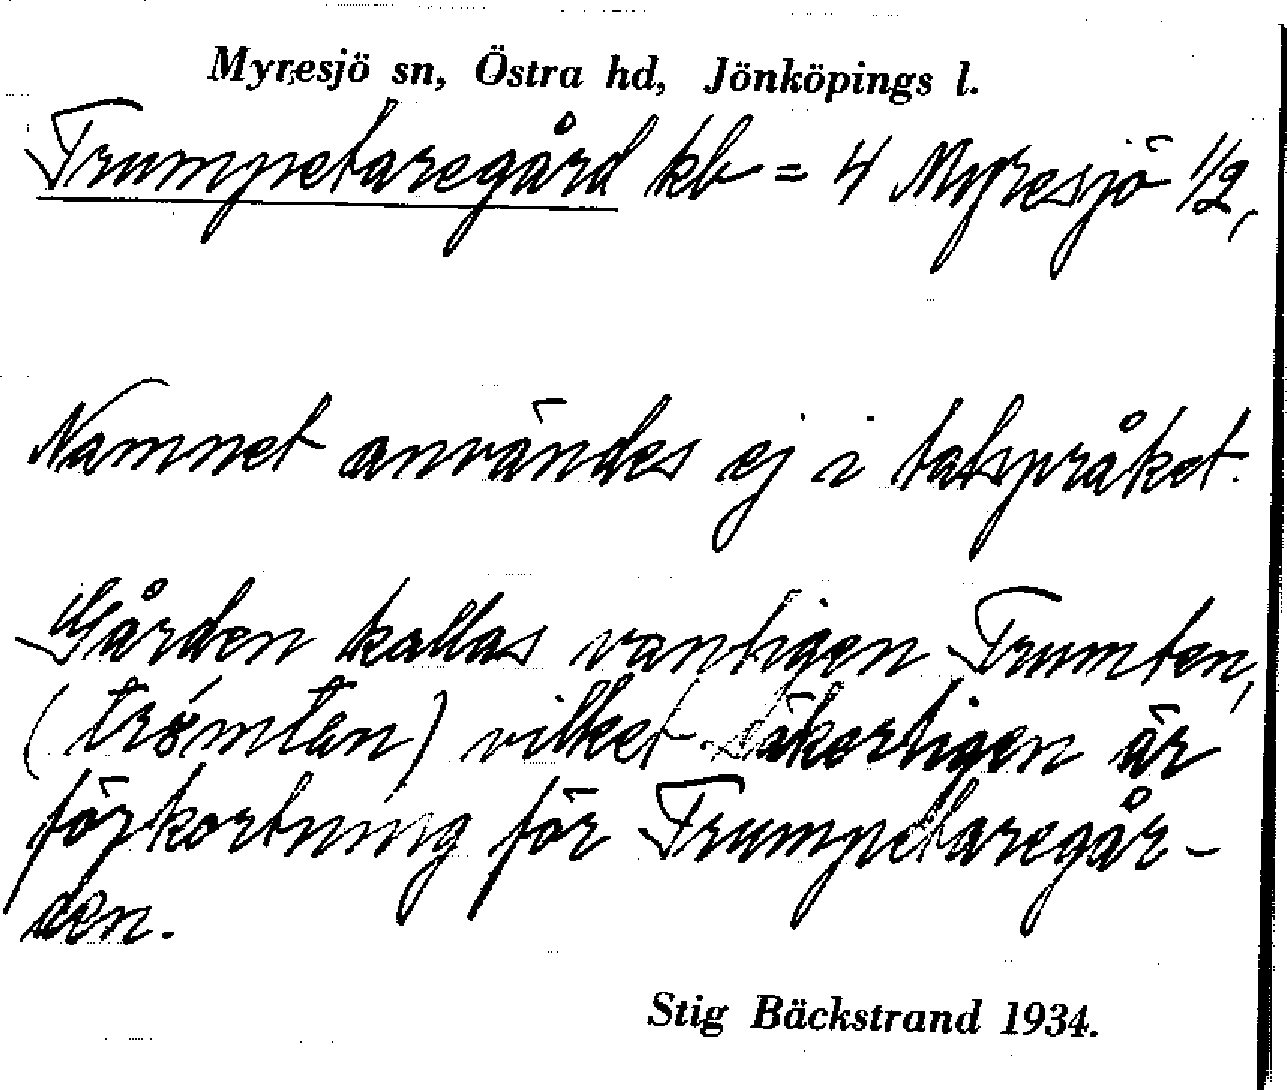 Myresjö sn, Östra hd, Jönköpings l.
Trumpetaregård kb = 4 Myresjö 1/2,
Namnet användes ej i talspråket.
Gården kallas vanligen Trumten,
(trømtən) vilket säkerligen är
förkortning för Trumpetaregår-
den.
Stig Bäckstrand 1934.